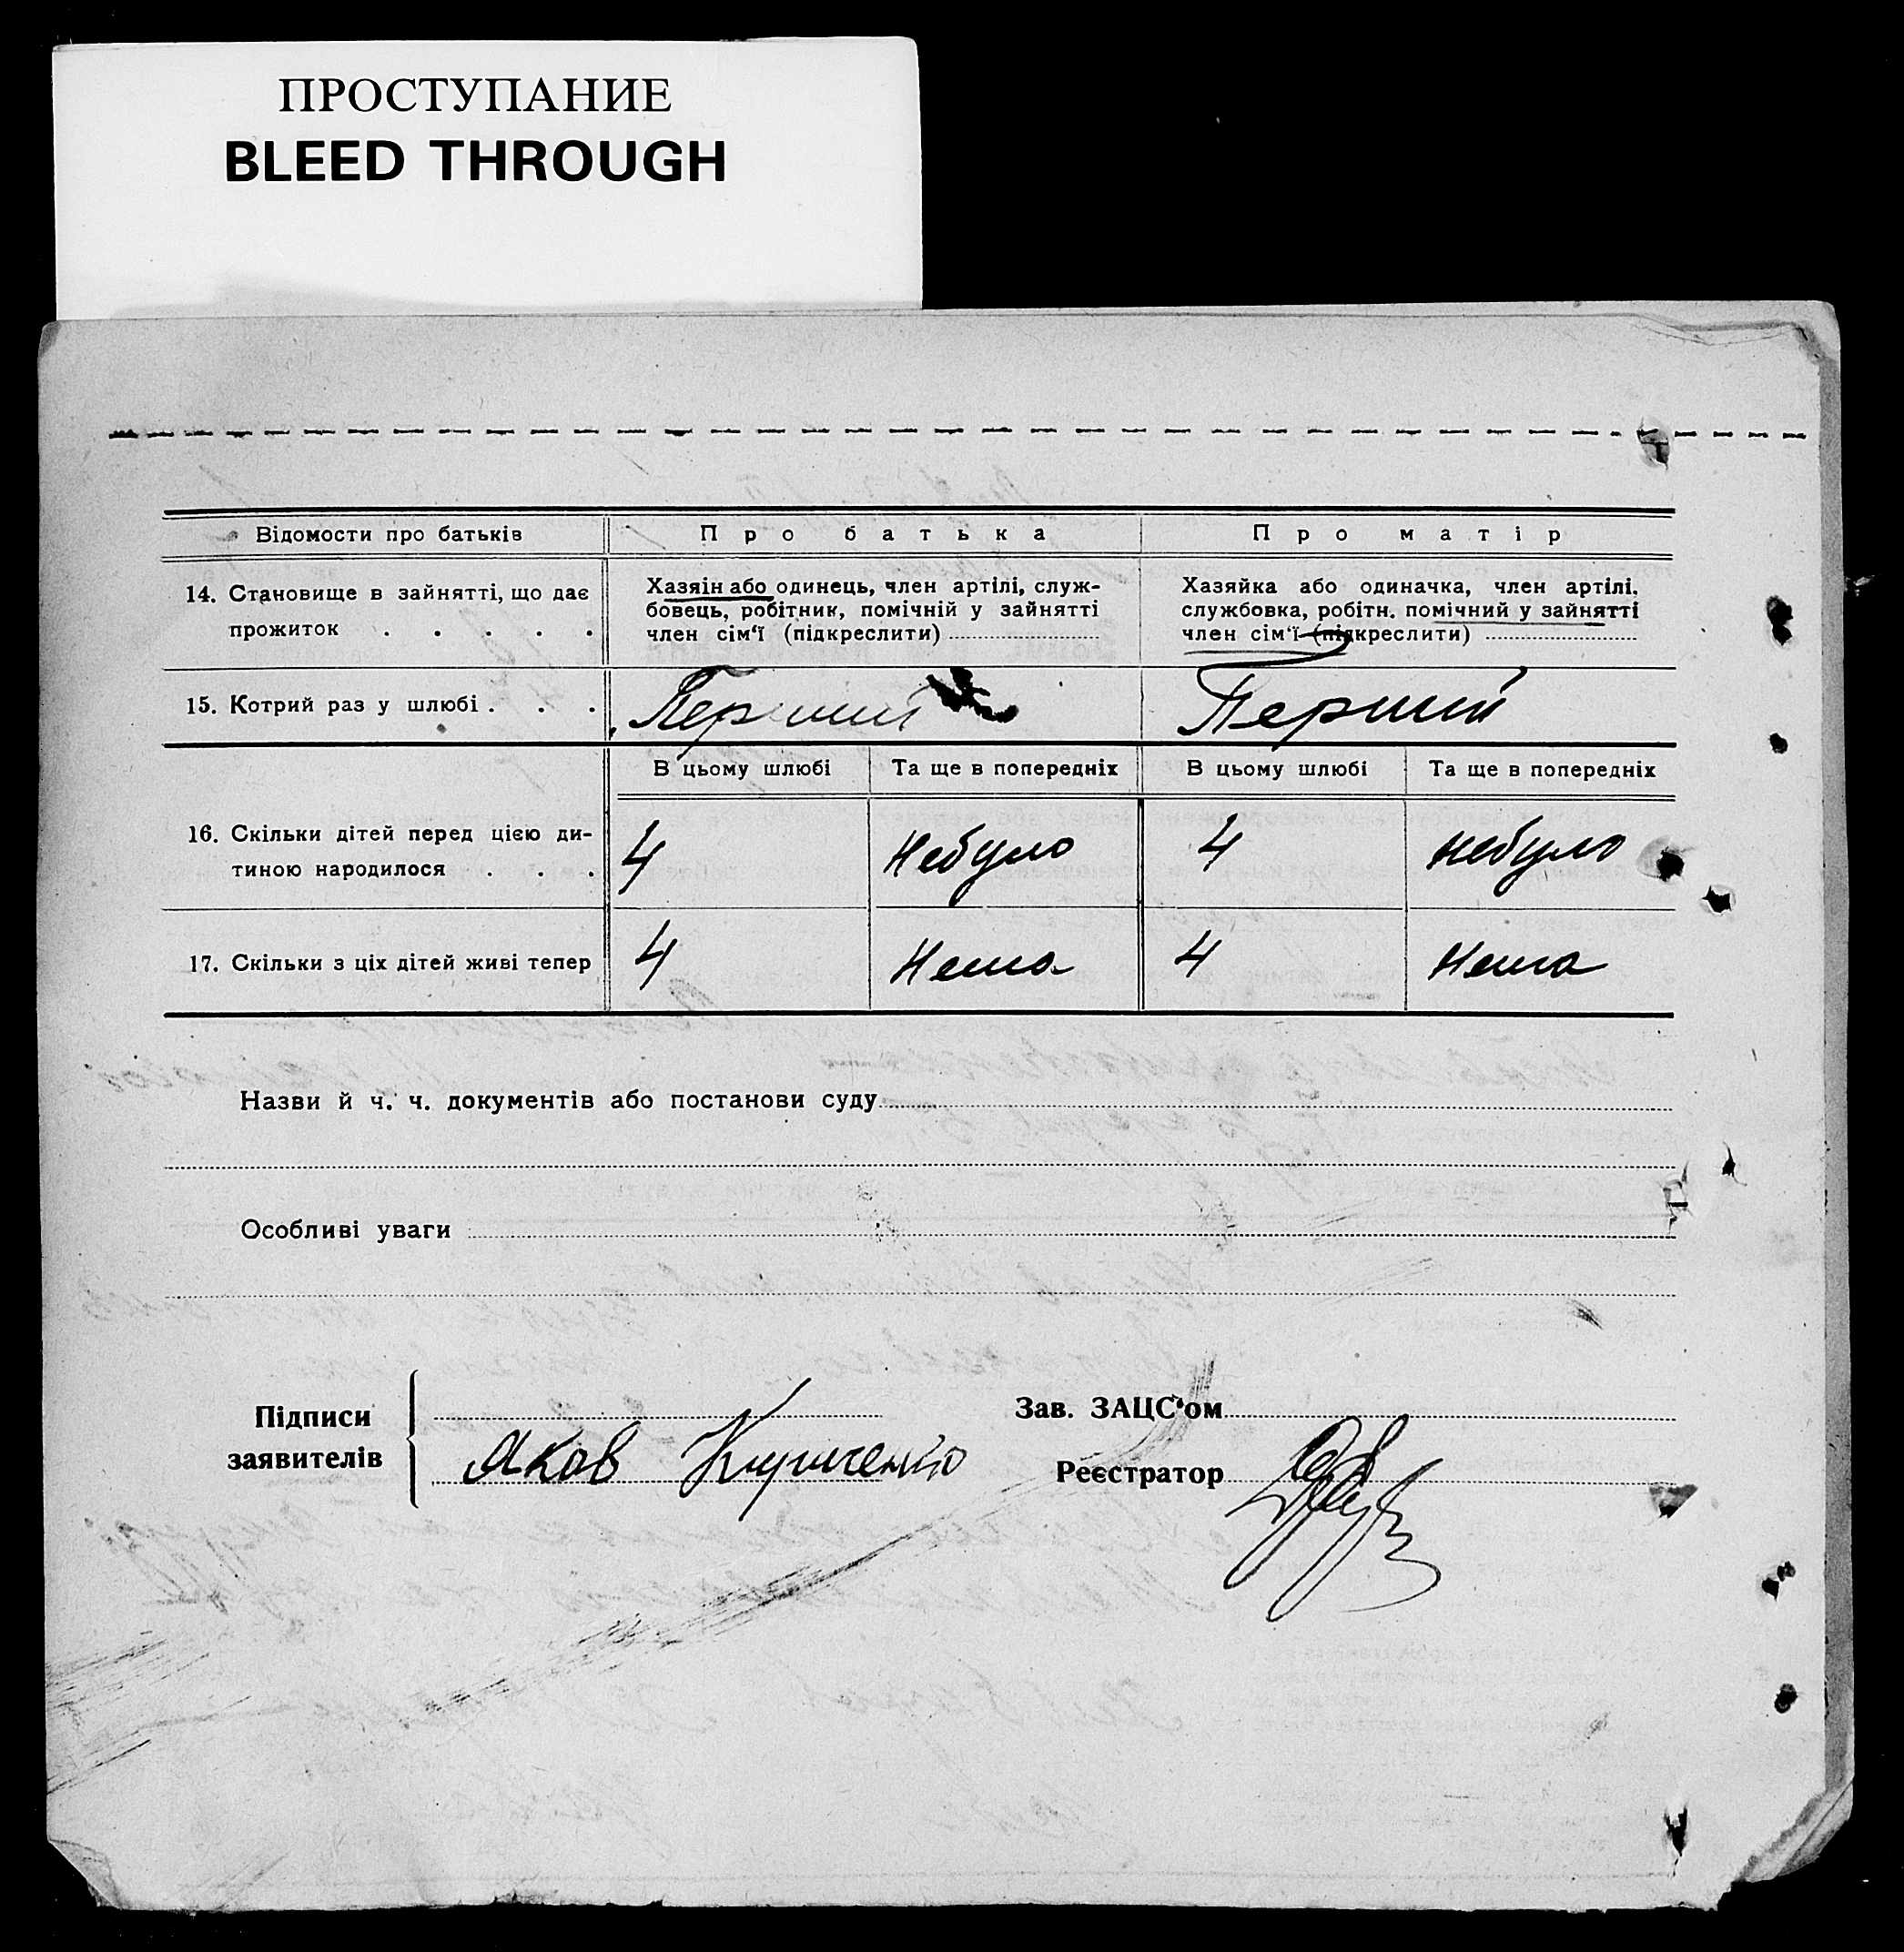 ПРОСТУПАНИЕ
BLEED THROUGH
Відомости про батьків
Про батька
Про матір
14. Становище в зайнятті, що дає прожиток . . . . .
Хазяін або одинець, член артілі, служ-
бовець, робітник, помічній у зайнятті
член сім‘ї (підкреслити)
Хазяйка або одиначка, член артілі.
службовка, робітн. помічний у зайнятті
член сім‘ї (підкреслити)
15. Котрий раз у шлюбі . . .
Перший
Перший
В цьому шлюбі
Та ще в попередніх
В цьому шлюбі
Та ще в попередніх
16. Скільки дітей перед цією ди-
тиною народилося . . .
4
Небуло
4
небуло
17. Скільки з ціх дітей живі тепер
4
Нема
4
Нема
Назви й ч. ч. документів або постанови суду
Особливі уваги
Підписи
заявителів
Яков
Зав. ЗАЦС‘ом
Реєстратор